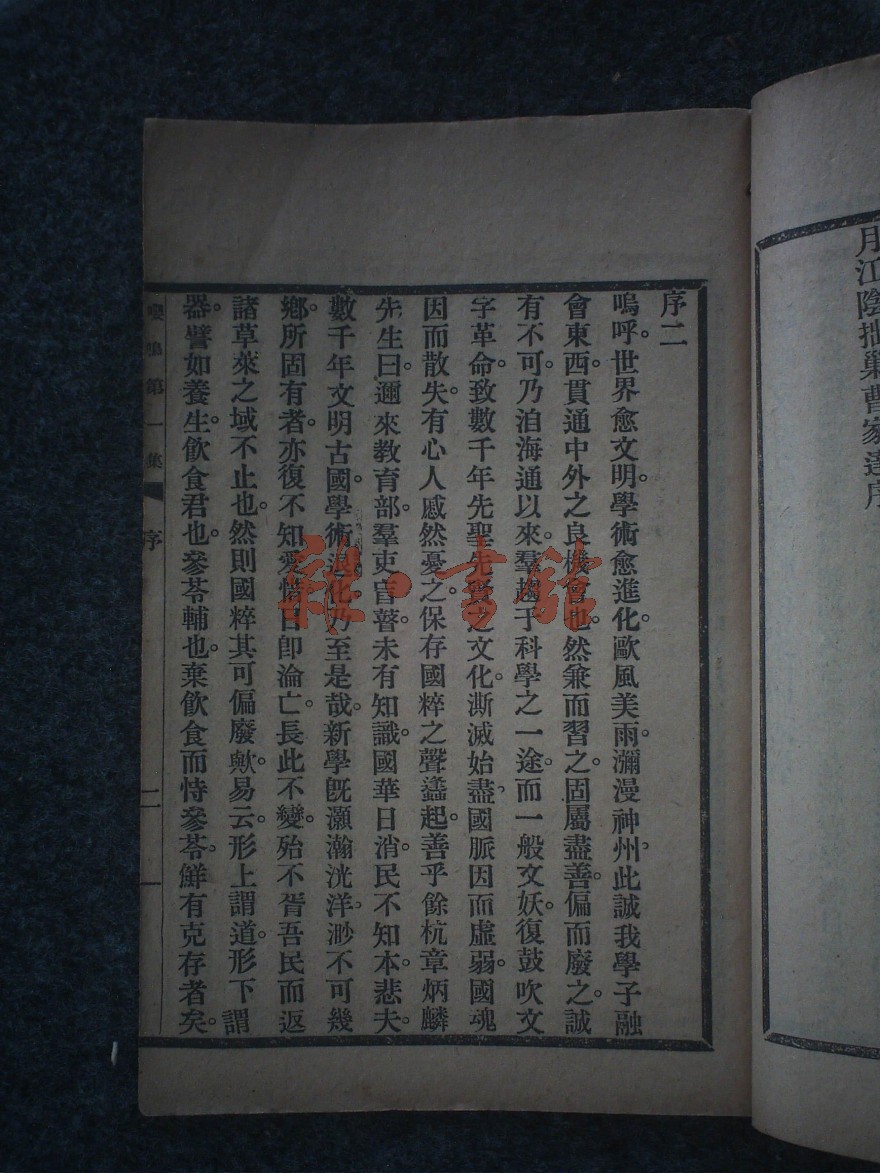 月江陰拙巢曹家達序
序二
嗚呼。世界愈文明。學術愈進化。歐風美雨。瀰漫神州。此誠我學子融
會東西。貫通中外之良機會也。然兼而習之。固屬盡善。偏而廢之。誠
有不可。乃洎海通以來。羣趨于科學之一途。而一般文妖。復鼓吹文
字革命。致數千年先聖先賢之文化。澌滅始盡。國脈因而虛弱。國魂
因而散失。有心人慼然憂之。保存國粹之聲蠭起。善乎餘杭章炳麟
先生曰。邇來教育部。羣吏盲瞽。未有知識。國華日消。民不知本。悲夫。
數千年文明古國。學術退化。乃至是哉。新學旣灝瀚洸洋。渺不可幾。
鄉所固有者。亦復不知愛惜。日卽淪亡。長此不變。殆不胥吾民而返
諸草萊之域不止也。然則國粹其可偏廢歟。易云。形上謂道。形下謂
器。譬如養生。飲食君也。參苓輔也。棄飲食而恃參苓。鮮有克存者矣。
第一集
序
二
一
雜·書館